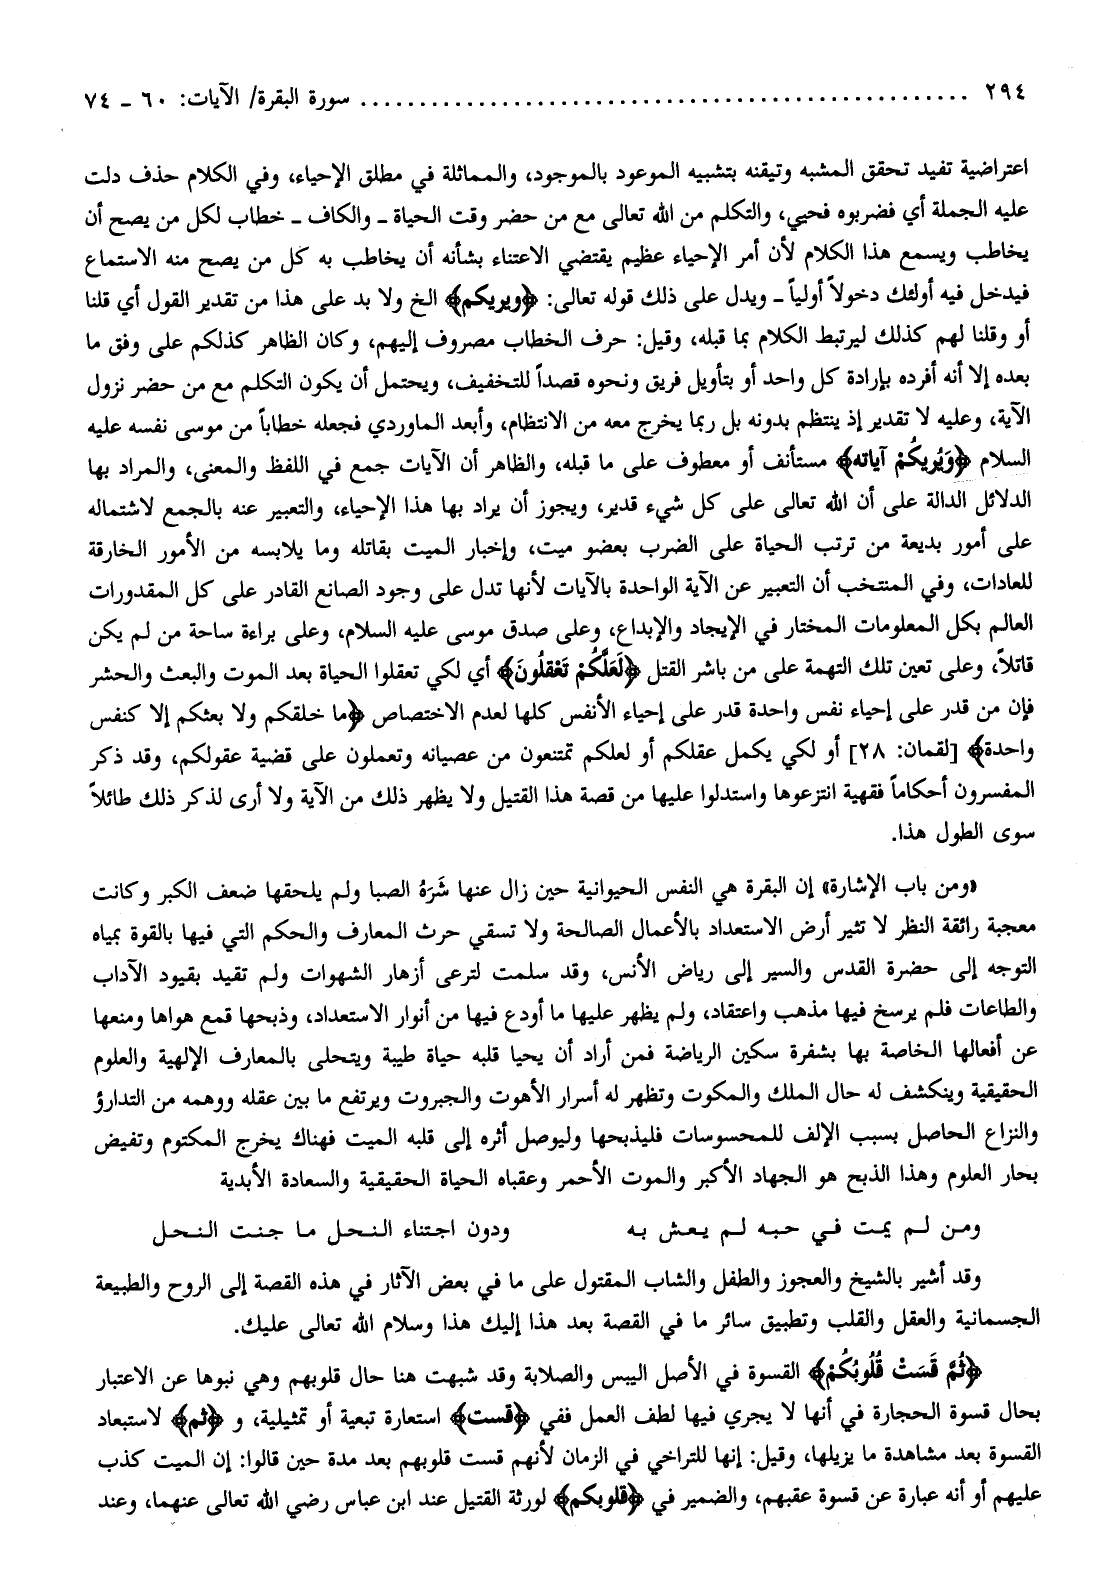 ٢٩٤ .................................................... سورة البقرة/ الآيات: ٦٠ ـ ٧٤
اعتراضية تفيد تحقق المشبه وتيقنه بتشبيه الموعود بالموجود، والمماثلة في مطلق الإحياء، وفي الكلام حذف دلت
عليه الجملة أي فضربوه فحيي، والتكلم من الله تعالى مع من حضر وقت الحياة ـ والكاف ـ خطاب لكل من يصح أن
يخاطب ويسمع هذا الكلام لأن أمر الإحياء عظيم يقتضي الاعتناء بشأنه أن يخاطب به كل من يصح منه الاستماع
فيدخل فيه أولئك دخولاً أولياً ـ ويدل على ذلك قوله تعالى: ﴿ويريكم﴾ الخ ولا بد على هذا من تقدير القول أي قلنا
أو وقلنا لهم كذلك ليرتبط الكلام بما قبله، وقيل: حرف الخطاب مصروف إليهم، وكان الظاهر كذلكم على وفق ما
بعده إلا أنه أفرده بإرادة كل واحد أو بتأويل فريق ونحوه قصداً للتخفيف، ويحتمل أن يكون التكلم مع من حضر نزول
الآية، وعليه لا تقدير إذ ينتظم بدونه بل ربما يخرج معه من الانتظام، وأبعد الماوردي فجعله خطاباً من موسى نفسه عليه
السلام ﴿وَيُريكُمْ آياته﴾ مستأنف أو معطوف على ما قبله، والظاهر أن الآيات جمع في اللفظ والمعنى، والمراد بها
الدلائل الدالة على أن الله تعالى على كل شيء قدير، ويجوز أن يراد بها هذا الإحياء، والتعبير عنه بالجمع لاشتماله
على أمور بديعة من ترتب الحياة على الضرب بعضو ميت، وإخبار الميت بقاتله وما يلابسه من الأمور الخارقة
للعادات، وفي المنتخب أن التعبير عن الآية الواحدة بالآيات لأنها تدل على وجود الصانع القادر على كل المقدورات
العالم بكل المعلومات المختار في الإيجاد والإبداع، وعلى صدق موسى عليه السلام، وعلى براءة ساحة من لم يكن
قاتلاً، وعلى تعين تلك التهمة على من باشر القتل ﴿لَعَلَّكُمْ تَعْقلُونَ﴾ أي لكي تعقلوا الحياة بعد الموت والبعث والحشر
فإن من قدر على إحياء نفس واحدة قدر على إحياء الأنفس كلها لعدم الاختصاص ﴿ما خلقكم ولا بعثكم إلا كنفس
واحدة﴾ [لقمان: ٢٨] أو لكي يكمل عقلكم أو لعلكم تمتنعون من عصيانه وتعملون على قضية عقولكم، وقد ذكر
المفسرون أحكاماً فقهية انتزعوها واستدلوا عليها من قصة هذا القتيل ولا يظهر ذلك من الآية ولا أرى لذكر ذلك طائلاً
سوى الطول هذا.
«ومن باب الإشارة» إن البقرة هي النفس الحيوانية حين زال عنها شَرَهُ الصبا ولم يلحقها ضعف الكبر وكانت
معجبة رائقة النظر لا تثير أرض الاستعداد بالأعمال الصالحة ولا تسقي حرث المعارف والحكم التي فيها بالقوة بمياه
التوجه إلى حضرة القدس والسير إلى رياض الأنس، وقد سلمت لترعى أزهار الشهوات ولم تقيد بقيود الآداب
والطاعات فلم يرسخ فيها مذهب واعتقاد، ولم يظهر عليها ما أودع فيها من أنوار الاستعداد، وذبحها قمع هواها ومنعها
عن أفعالها الخاصة بها بشفرة سكين الرياضة فمن أراد أن يحيا قلبه حياة طيبة ويتحلى بالمعارف الإلهية والعلوم
الحقيقية وينكشف له حال الملك والمكوت وتظهر له أسرار الأهوت والجبروت ويرتفع ما بين عقله ووهمه من التدارؤ
والنزاع الحاصل بسبب الإلف للمحسوسات فليذبحها وليوصل أثره إلى قلبه الميت فهناك يخرج المكتوم وتفيض
بحار العلوم وهذا الذبح هو الجهاد الأكبر والموت الأحمر وعقباه الحياة الحقيقية والسعادة الأبدية
ومن لم يمت في حبه لم يعش به ودون اجتناء النحل ما جنت النحل
وقد أشير بالشيخ والعجوز والطفل والشاب المقتول على ما في بعض الآثار في هذه القصة إلى الروح والطبيعة
الجسمانية والعقل والقلب وتطبيق سائر ما في القصة بعد هذا إليك هذا وسلام الله تعالى عليك.
﴿ثُمَّ قَسَتْ قُلُوبُكُمْ﴾ القسوة في الأصل اليبس والصلابة وقد شبهت هنا حال قلوبهم وهي نبوها عن الاعتبار
بحال قسوة الحجارة في أنها لا يجري فيها لطف العمل ففي ﴿قست﴾ استعارة تبعية أو تمثيلية، و ﴿ثم﴾ لاستبعاد
القسوة بعد مشاهدة ما يزيلها، وقيل: إنها للتراخي في الزمان لأنهم قست قلوبهم بعد مدة حين قالوا: إن الميت كذب
عليهم أو أنه عبارة عن قسوة عقبهم، والضمير في ﴿قلوبكم﴾ لورثة القتيل عند ابن عباس رضي الله تعالى عنهما، وعند